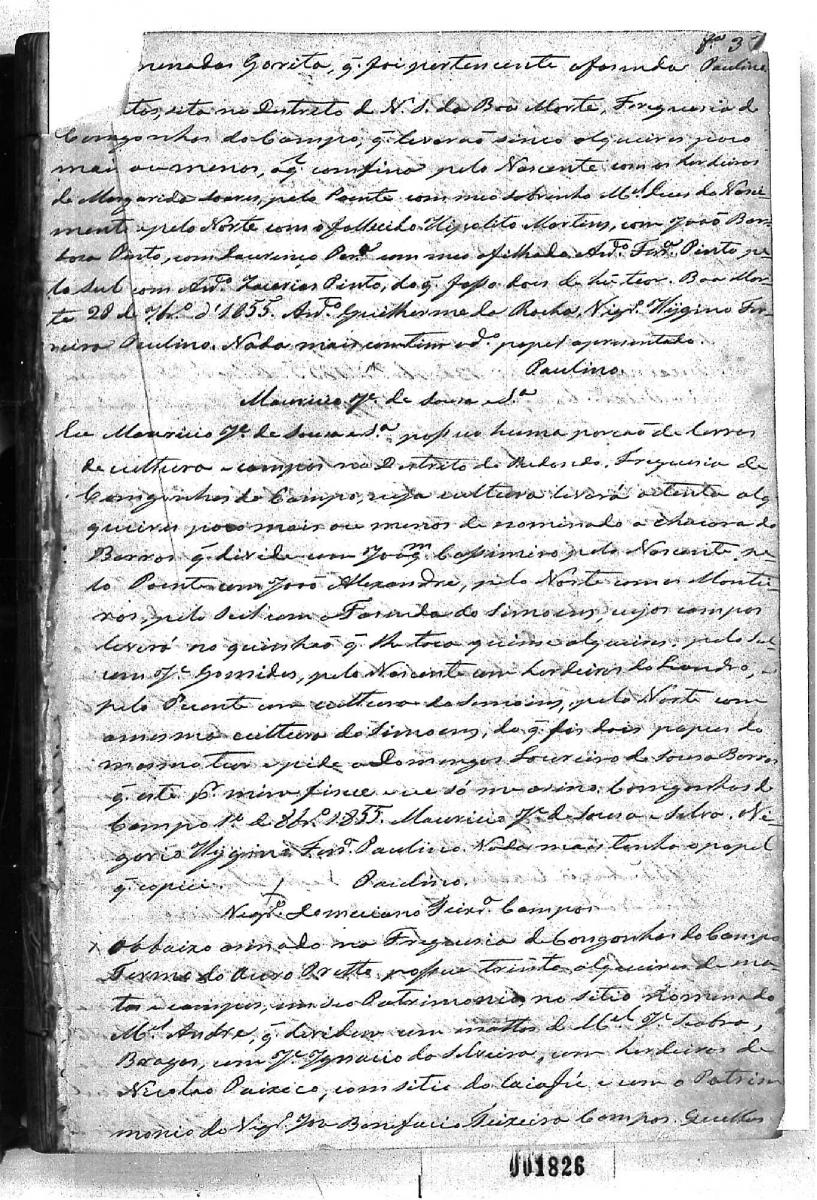 fo 37
nenadas Gorita, q. foi pertencente a fasenda Pauline
tos, sita no Destreto de N. S. da Boa Morte, Freguesia de
Congonhas do Campo, q. levaraõ sinco alqueires poco
mais ou menos, a q.l comfina pelo Nascente com os herdeiros
de Margarida Soares, pelo Poente com meo sobrinho M.el Luis do Nasci-
mento e pelo Norte com o fallecido Hipolito Martins, com Joaõ Bar-
bosa Pinto, com Lourenço Per.a com meo afilhado An.do Fr.o Pinto, pe-
lo Sul com An.do Zacarias Pinto, do q. fasso dois de hũ teor. Boa Mor-
te 28 de 7br.o d'1855. An.to Guilherme da Rocha, Vigr.o Hygino Fer-
reira Paulino. Nada mais continha o d.o papel apresentado.
Paulino.
Mauricio J.e de Sousa e S.a
Eu Mauricio J.e de Sousa e S.a possuo huma porçaõ de terras
de cultura e campos no Destrito do Redondo, Freguesia de
Congonhas do Campo, cuja cultura leverá oitenta alq
queires poco mais ou menos denominado a chacara do
Barros q. divide com Joaq.m Casimiro pelo Nascente, pe-
lo Poente com Joaõ Alexandre, pelo Norte com os Montei-
ros, pelo Sul com a Fasenda do Simoens, cujos campos
leverá no quinhaõ q. lhe toca quinse alqueires, pelo Sul
com J.e Gomides, pelo Nascente com herdeiros do Leandro,
pelo Poente com cultura do Simoens, pelo Norte com
a mesma cultura do Simoens, do q. fis dois papeis do
mesmo teor e pide a Domingos Loureiro de Sousa Barros
q. este p.r mim fisece e eu só me asino. Congonhas do
Campo 1.o de 8br.o 1855. Mauricio J.e de Sousa e Silva. Vi-
gario Hygino Ferr.a Paulino. Nada mais tenha o papel
q. copiei. Paulino.
Vigr.o Domiciano Teixr.a Campos
O abaixo asinado na Freguesia de Congonhas do Campo
Termo do Ouro Pretto possue trinta alqueires de ma-
tos e campos, em seo Patrimonio, no sitio Nomenado
M.el Andre, q. devidem com mattos de M.el J.e Seabra,
Bragas, com J.e Ignacio da Silveira, com herdeiros de
Nicolao Paixeco, com sitio do e com o Patrim
monio do Vigr.o Joze Bonifacio Teixeira Campos.
001826